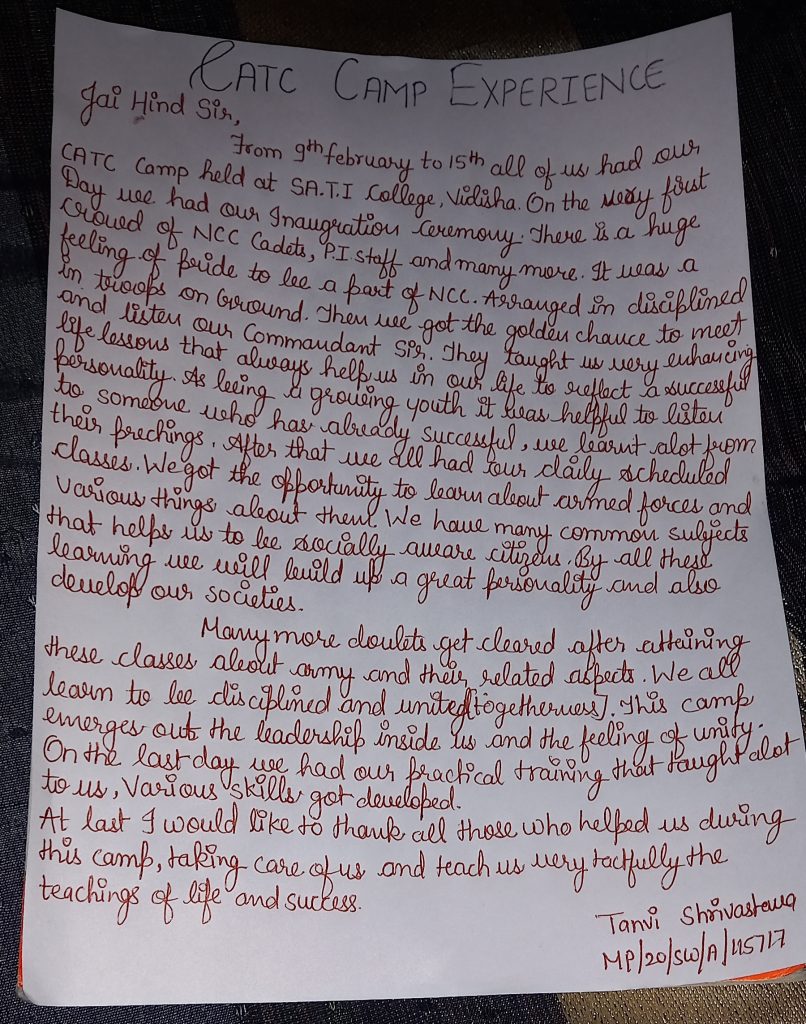 CATC CAMP EXPERIENCE
Jai Hind Sir,
From 9th february to 15th all of us had our
CATC Camp held at SA.T.I College, Vidisha. On the very first
Day we had our Inaugration Ceremony. There is a huge
crowd of NCC Cadets, P.I staff and many more. It was a
feeling of pride to be a part of NCC. Arranged in disciplined
in troops on Ground. Then we got the golden chance to meet
and listen our Commandant Sir. They taught us very enhancing
life lessons that always help us in our life to reflect a successful
personality. As being a growing youth it was helpful to listen
to someone who has already successful, we learnt alot from
their prechings. After that we all had our daily scheduled
classes. We got the opportunity to learn about armed forces and
various things about them. We have many common subjects
that helps us to be socially aware citizens. By all these
learning we will build up a great personality and also
develop our societies.
Many more doubts get cleared after attaining
these classes about army and their related aspects. We all
learn to be disciplined and united[togetherness]. This camp
emerges out the leadership inside us and the feeling of unity.
On the last day we had our practical training that taught alot
to us, Various skills got developed.
At last I would like to thank all those who helped us during
this camp, taking care of us and teach us very tactfully the
teachings of life and success.
Tanvi Shrivastewa
MP/20/SW/A/115717